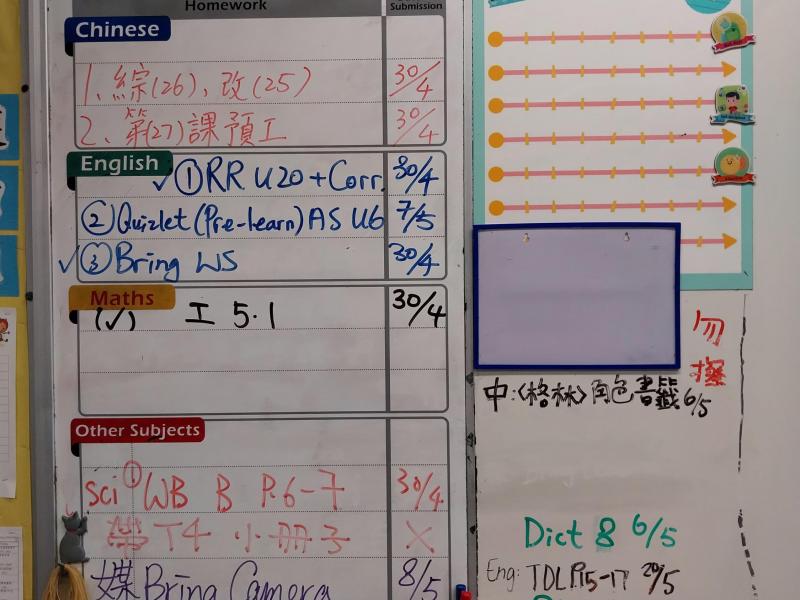 Homework
Submission
Chinese
1. 綜(26)、改(25) 30/4
2. 第(27)課預工 30/4
English
✓①RR U20+Corr. 30/4
②Quizlet (Pre-learn) AS U6 7/5
✓③Bring WS 30/4
Maths
(✓) 工 5.1 30/4
Other Subjects
Sci ① WB B P.6-7 30/4
T4 小冊子 X
媒 Bring Camera 8/5
勿
擦
中:<格林>角色書籤 6/5
Dict 8 6/5
Eng: TDL P.15-17 20/5